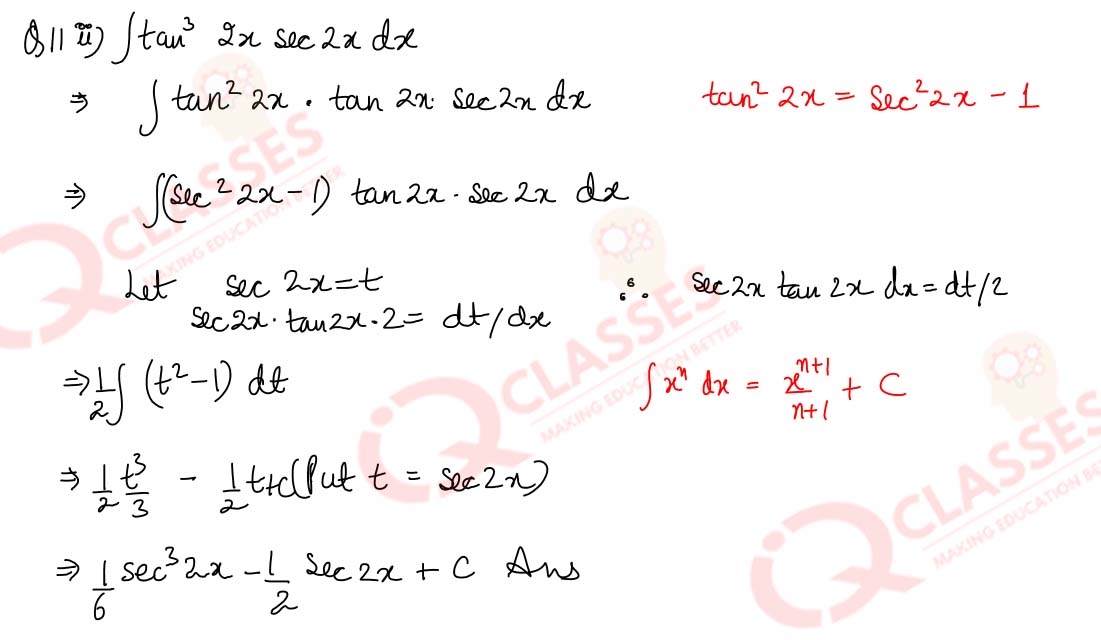 Q11 ii) ∫tan³ 2x sec 2x dx
⇒ ∫ tan² 2x · tan 2x · sec 2x dx
tan² 2x = sec² 2x - 1
⇒ ∫(sec² 2x - 1) tan 2x · sec 2x dx
Let sec 2x = t
∴ sec 2x tan 2x dx = dt/2
sec 2x · tan 2x · 2 = dt/dx
⇒ 1/2 ∫ (t² - 1) dt
∫ xⁿ dx = xⁿ⁺¹/n+1 + C
⇒ 1/2 t³/3 - 1/2 t+c (Put t = sec 2x)
⇒ 1/6 sec³ 2x - 1/2 sec 2x + C Ans
QCLASSES
MAKING EDUCATION BETTER
QCLASSES
MAKING EDUCATION BETTER
QCLASSES
MAKING EDUCATION BETTER